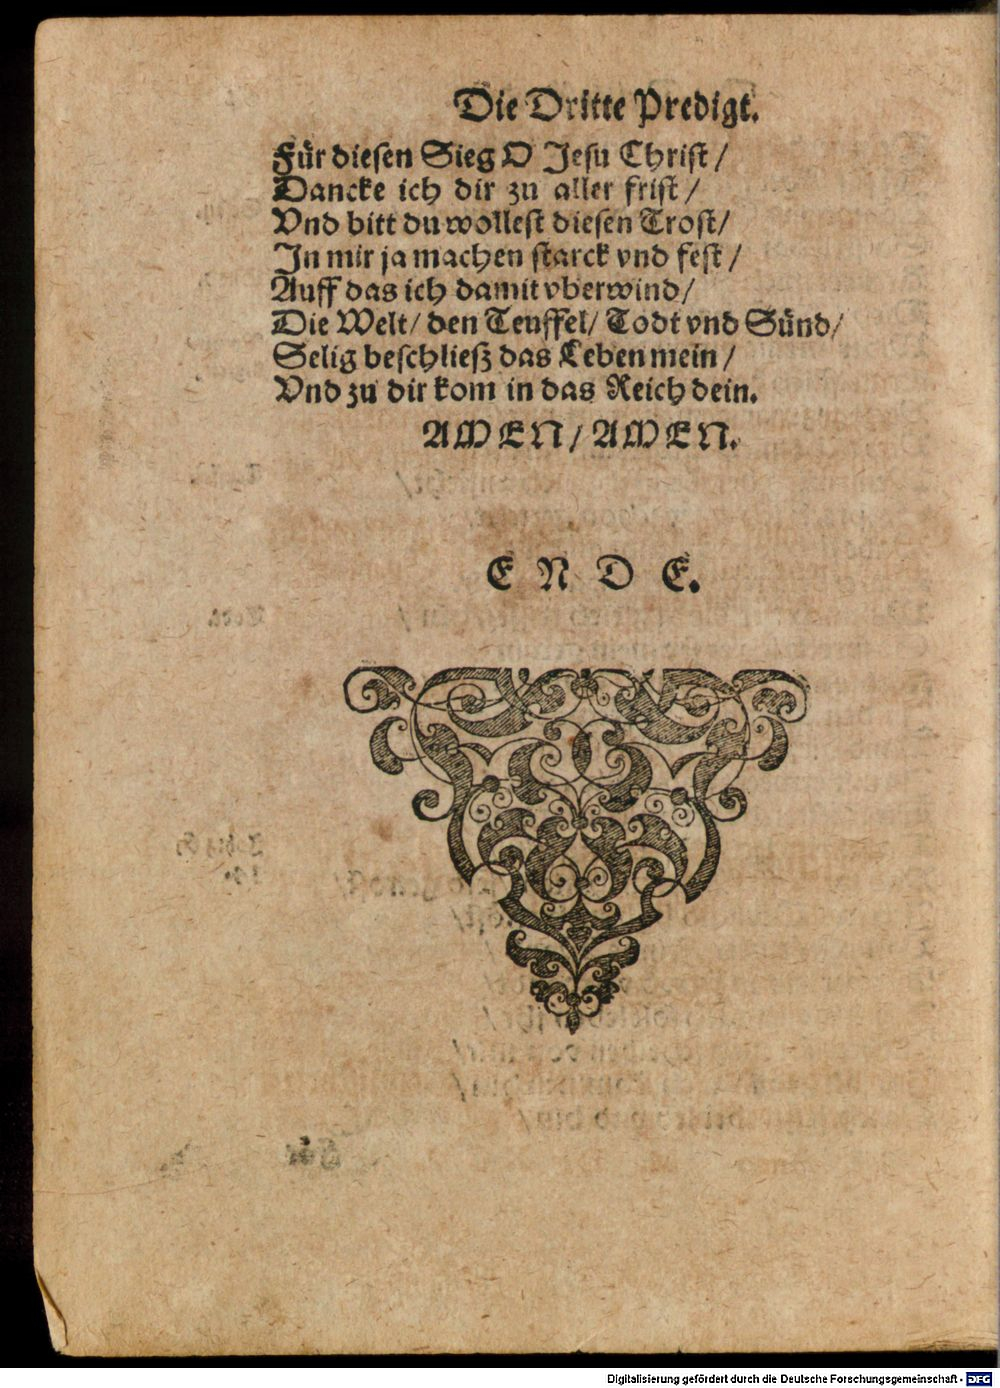 Die Dritte Predigt.
Für diesen Sieg O Jesu Christ /
Dancke ich dir zu aller frist /
Vnd bitt du wollest diesen Trost /
In mir ja machen starck vnd fest /
Auff das ich damit vberwind /
Die Welt / den Teuffel / Todt vnd Sünd /
Selig beschließ das Leben mein /
Vnd zu dir kom in das Reich dein.
AMEN / AMEN.
E N D E.
Digitalisierung gefördert durch die Deutsche Forschungsgemeinschaft - DFG